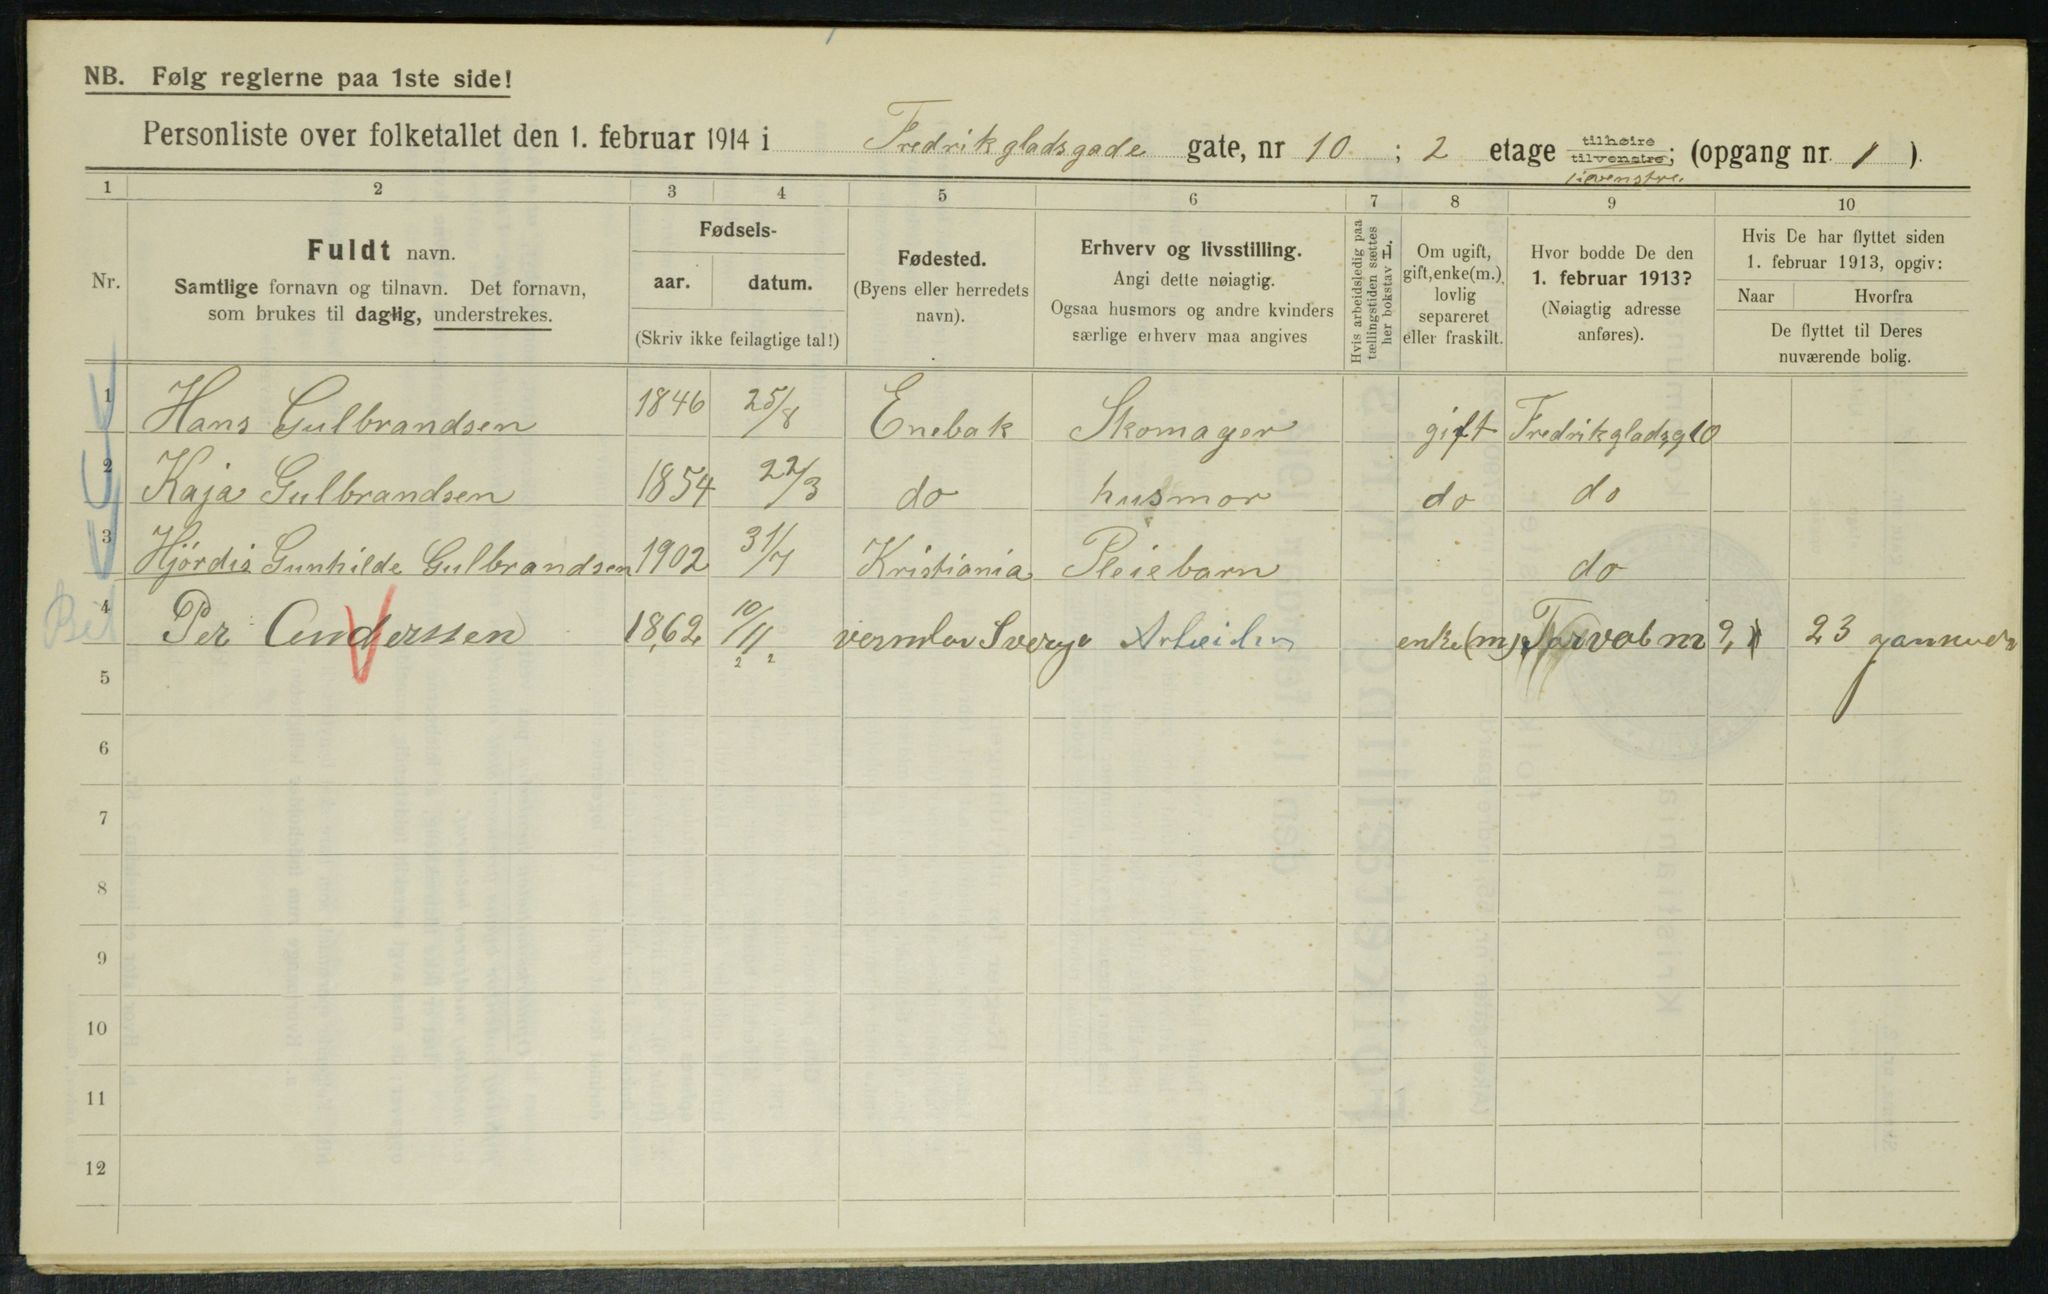 NB. Følg reglerne paa 1ste side!
Personliste over folketallet den 1. februar 1914 i Fredrikgladsgade gate, nr 10 ; 2 etage tilhøire tilvenstre; tilvenstre. (opgang nr. 1 ).
1 2 3 4 5 6 7 8 9 10
Nr.
Fuldt navn.
Samtlige fornavn og tilnavn. Det fornavn,
som brukes til daglig, understrekes.
Fødsels-
aar. datum.
(Skriv ikke feilagtige tal!)
Fødested.
(Byens eller herredets
navn).
Erhverv og livsstilling.
Angi dette nøiagtig.
Ogsaa husmors og andre kvinders
særlige erhverv maa angives
Hvis arbeidsledig paa
tællingstiden sættes
her bokstav L.
Om ugift,
gift, enke(m.),
lovlig
separeret
eller fraskilt.
Hvor bodde De den
1. februar 1913?
(Nøiagtig adresse
anføres).
Hvis De har flyttet siden
1. februar 1913, opgiv:
Naar Hvorfra
De flyttet til Deres
nuværende bolig.
1 Hans Gulbrandsen 1846 25/8 Enebak Skomager gift Fredrikgladsg 10
2 Kaja Gulbrandsen 1854 22/3 do husmor do do
3 Hjørdis Gunhilde Gulbrandsen 1902 31/7 Kristiania Pleiebarn do
4 Per Anderssen 1862 10/11 vermlan Sverge Arbeider enke(m) 23
5
6
7
8
9
10
11
12